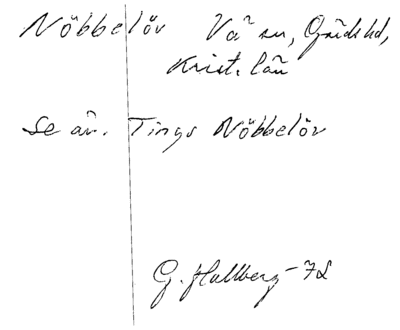 Nöbbelöv Vä sn, Gärds hd,
Krist. län
Se äv. Tings Nöbbelöv
G. Hallberg -72